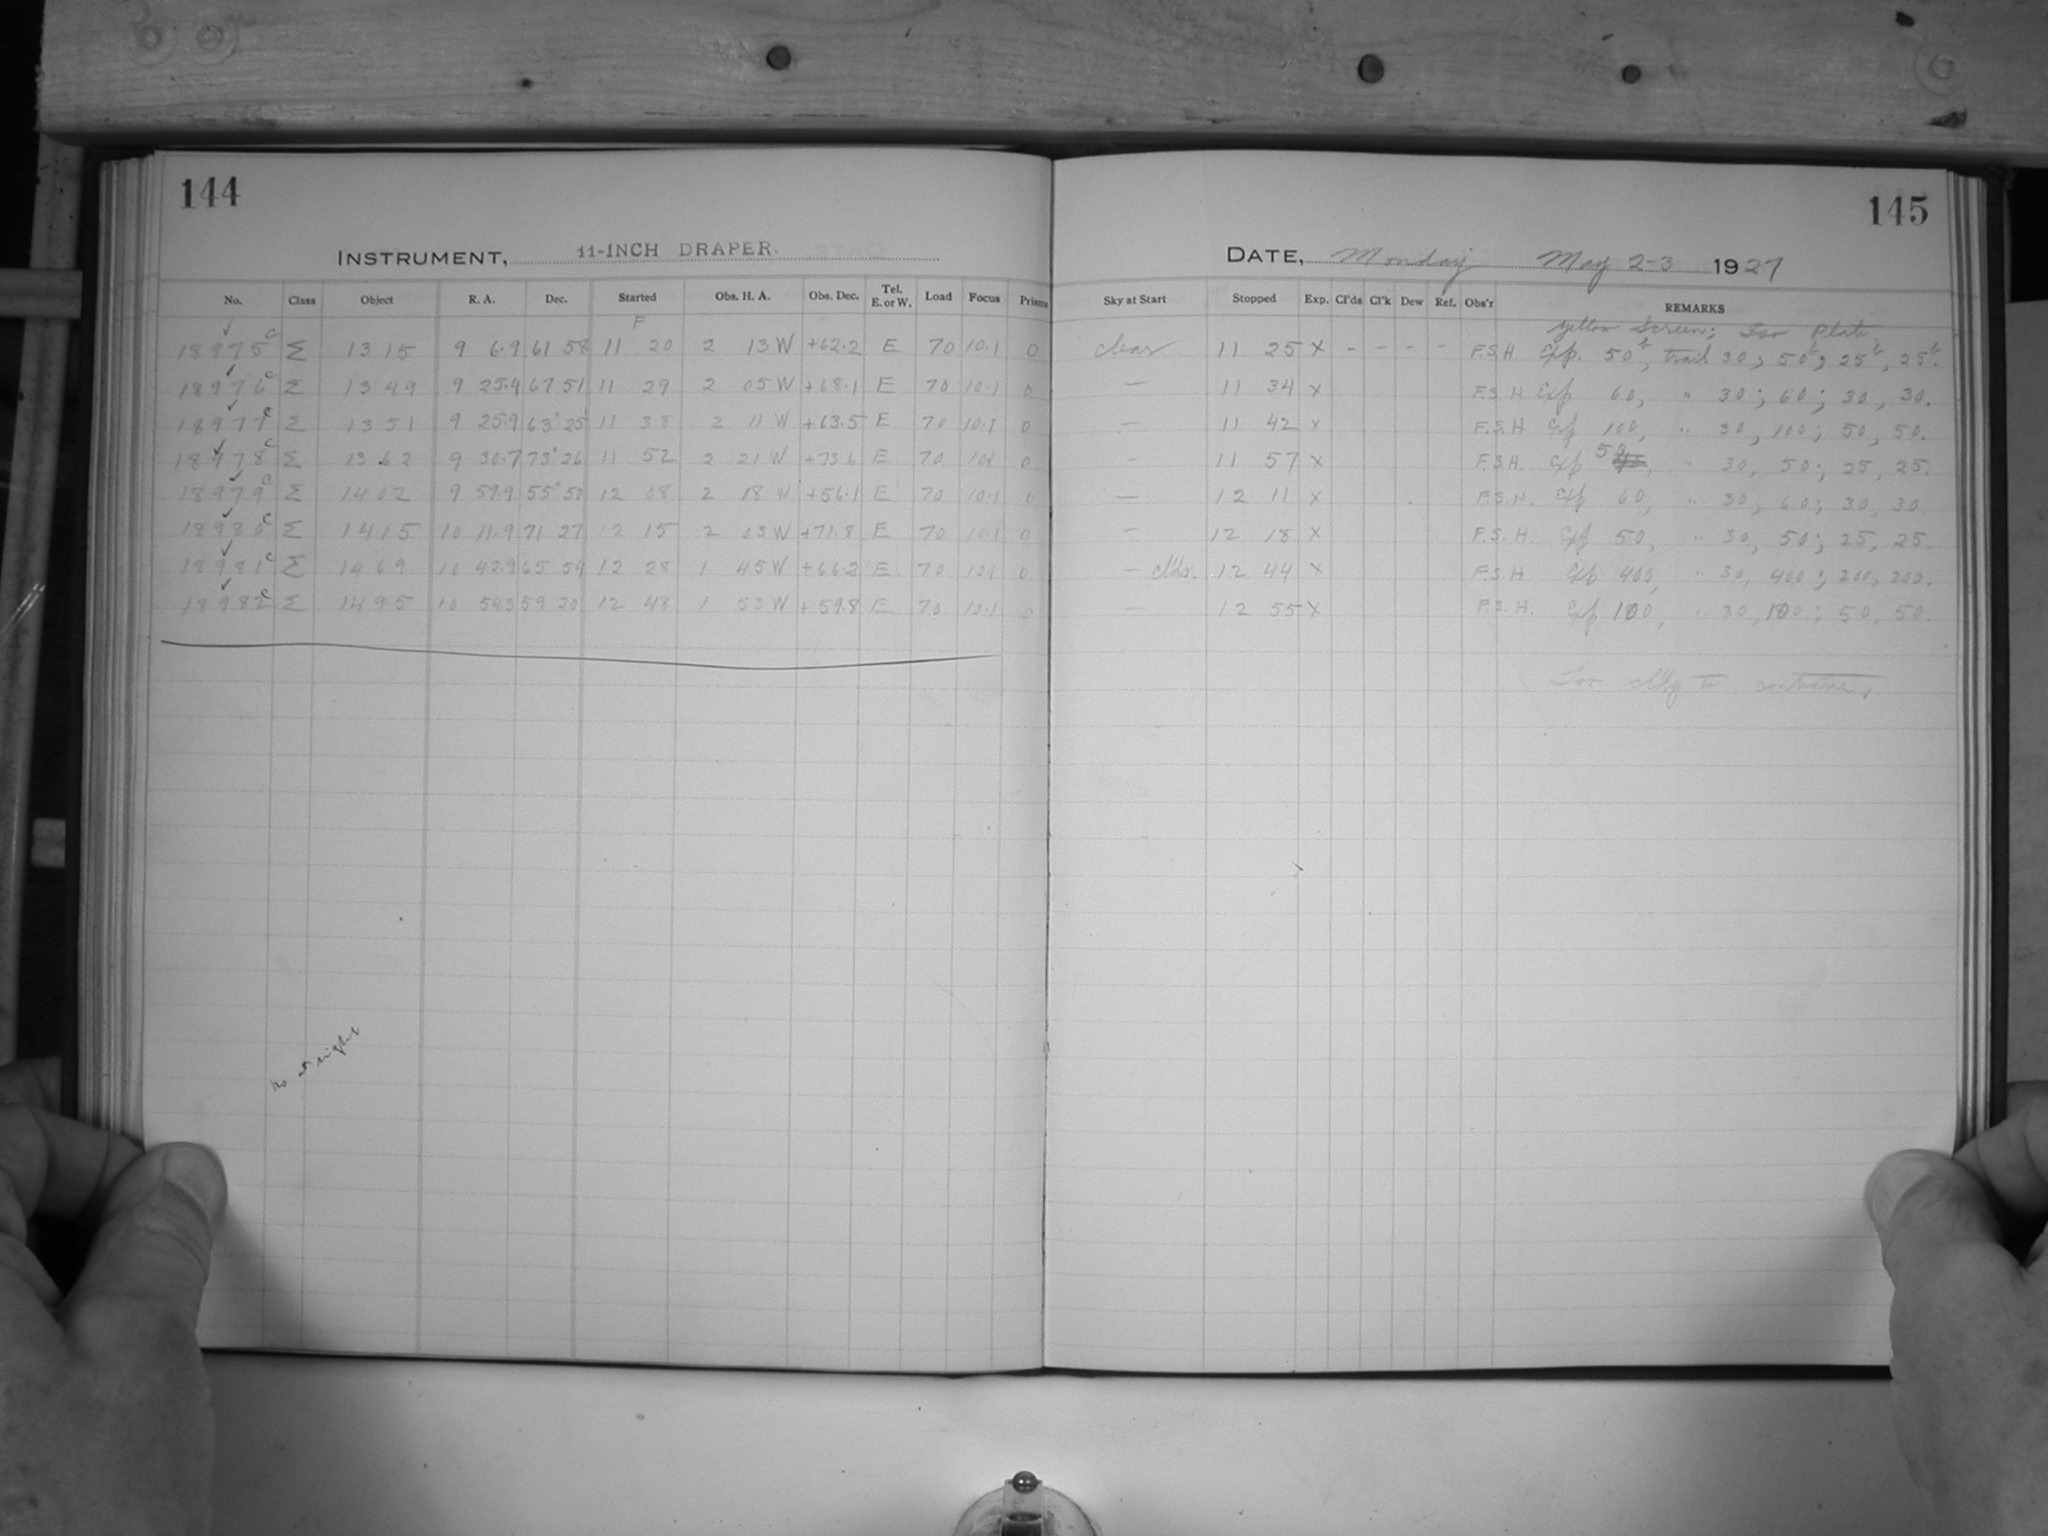 144
INSTRUMENT, 11-INCH DRAPER.
No. Class Object R. A. Dec. Started Obs. H. A. Obs. Dec. Tel. E. or W. Load Focus Prisms
F
18975 c Σ 1315 9 6.9 61 58 11 20 2 13 W +62.2 E 70 10.1 0
18976 c Σ 1349 9 25.4 67 51 11 29 2 05 W +68.1 E 70 10.1 0
18977 c Σ 1351 9 25.9 63°25 11 38 2 11 W +63.5 E 70 10.1 0
18978 c Σ 1362 9 30.7 73°26 11 52 2 21 W +73.6 E 70 10.1 0
18979 c Σ 1402 9 59.9 55°50 12 08 2 18 W +56.1 E 70 10.1 0
18980 c Σ 1415 10 11.9 71 27 12 15 2 03 W +71.8 E 70 10.1 0
18981 c Σ 1469 10 42.9 65 54 12 28 1 45 W +66.2 E 70 10.1 0
18982 c Σ 1495 10 54.3 59 20 12 48 1 53 W +59.8 E 70 10.1 0
145
DATE, Monday May 2-3 1927
Sky at Start Stopped Exp. Cl'ds Cl'k Dew Ref. Obs'r REMARKS
Yellow Screen; Iso Plate
clear 11 25 X - - - - F.S.H. Exp. 50t, trail 30; 50t; 25t, 25t.
— 11 34 X F.S.H Exp 60, " 30; 60; 30, 30.
— 11 42 X F.S.H Exp 100, " 30, 100; 50, 50.
— 11 57 X F.S.H. Exp 50, " 30, 50; 25, 25.
— 12 11 X F.S.H. Exp 60, " 30, 60; 30, 30.
— 12 18 X F.S.H. Exp 50, " 30, 50; 25, 25.
— 12 44 X F.S.H Exp 400, " 30, 400; 200, 200.
— 12 55 X F.S.H. Exp 100, " 30, 100; 50, 50.
Too cldy to continue.